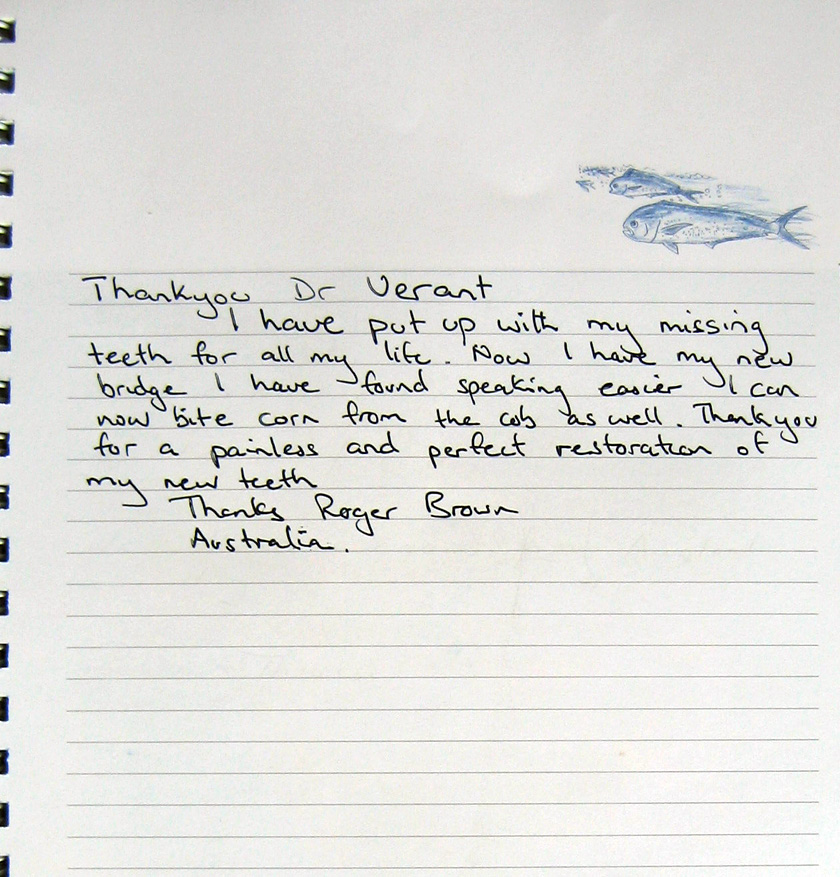 Thankyou Dr Verant
I have put up with my missing
teeth for all my life. Now I have my new
bridge I have found speaking easier I can
now bite corn from the cob as well. Thankyou
for a painless and perfect restoration of
my new teeth
Thanks Roger Brown
Australia.